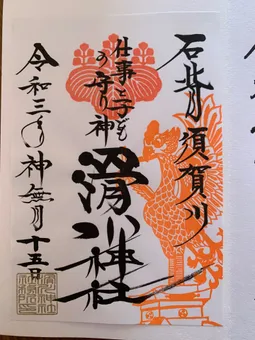 石背 須賀川
仕事と子ども
の守り神
滑川神社
令和三年 神無月十五日